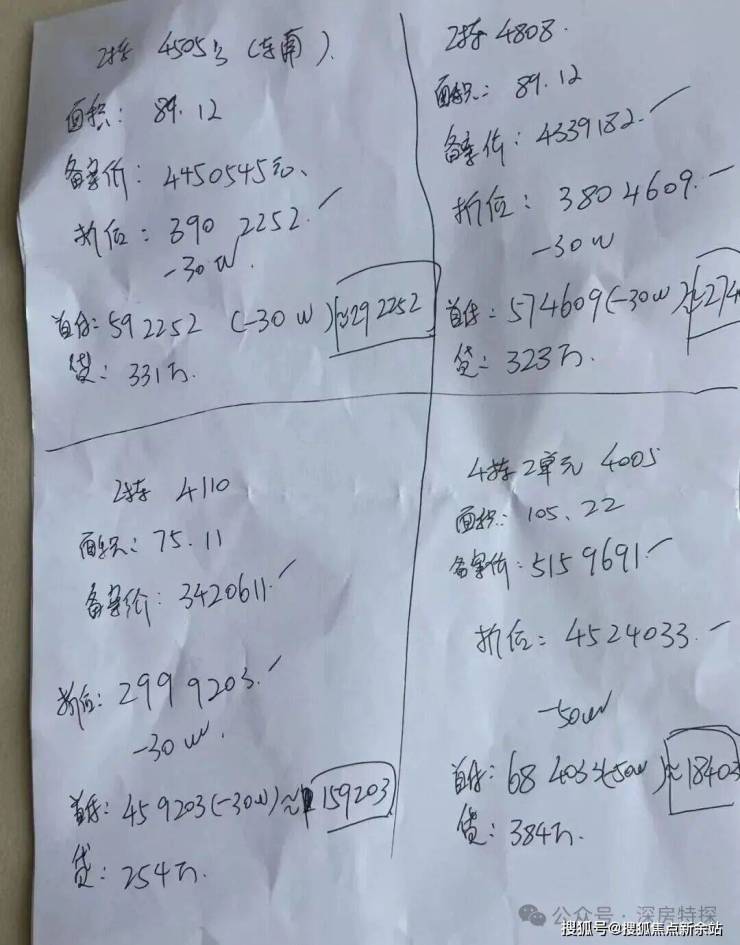 2栋 4505号 (东南).
面积: 89.12
备案价: 4450545元、
折后: 390 2252.
-30W.
首付: 592252 (-30W)≈292252
贷: 331万.
2栋 4808.
面积: 89.12
备案价: 4339182.
折后: 3804609.
-30W
首付: 574609(-30W)≈274
贷: 323万.
2栋 4110
面积: 75.11
备案价: 3420611.
折后: 299 9203.
-30W.
首付: 459203(-30W)≈159203
贷: 254万.
4栋2单元 4005
面积: 105.22
备案价: 515 9691.
折后: 4524033.
-50W
首付: 68 4033(-50W)≈18403
贷: 384万.
公众号 · 深房特探
搜狐号@搜狐焦点新余站